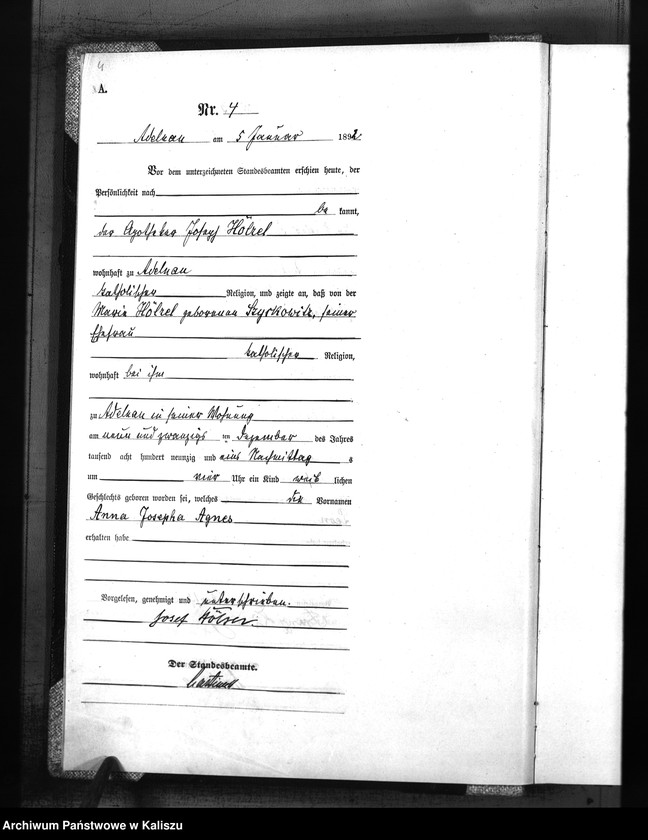 4
A.
Nr. 4
Adelnau am 5 Januar 1892
Vor dem unterzeichneten Standesbeamten erschien heute, der
Persönlichkeit nach
be kannt,
der Apotheker Joseph Hölzel
wohnhaft zu Adelnau
katholischer Religion, und zeigte an, daß von der
Marie Hölzel geborenen Szyskowitz, seiner
Ehefrau
katholischer Religion,
wohnhaft bei ihm
zu Adelnau in seiner Wohnung
am neun und zwanzigs ten Dezember des Jahres
tausend acht hundert neunzig und eins Nachmittag s
um vier Uhr ein Kind weib lichen
Geschlechts geboren worden sei, welches die Vornamen
Anna Josepha Agnes
erhalten habe
Vorgelesen, genehmigt und unterschrieben.
Josef Hölzel
Der Standesbeamte.
Archiwum Państwowe w Kaliszu